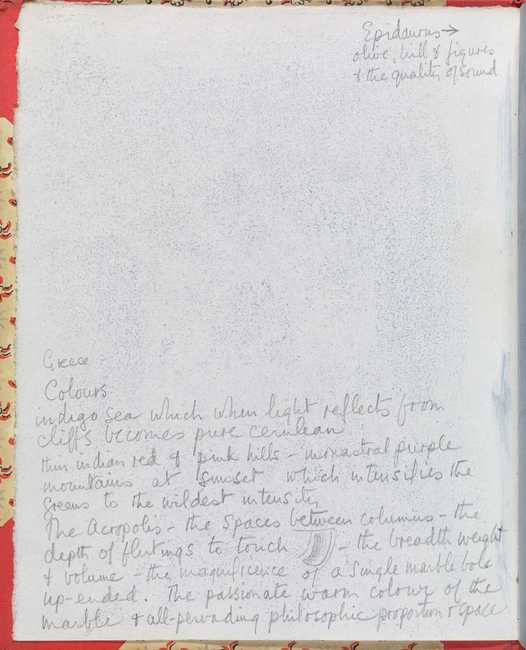 Epidaurus →
olive, hill & figures
& the quality of sound
Greece
Colours
indigo sea which when light reflects from
cliffs becomes pure cerulean
thin indian red & pink hills - monastral purple
mountains at sunset which intensifies the
greens to the wildest intensity
The Acropolis - the spaces between columns - the
depth of flutings to touch - the breadth weight
& volume - the magnificence of a single marble bole
up-ended. The passionate warm colour of the
marble & all-pervading philosophic proportion & space